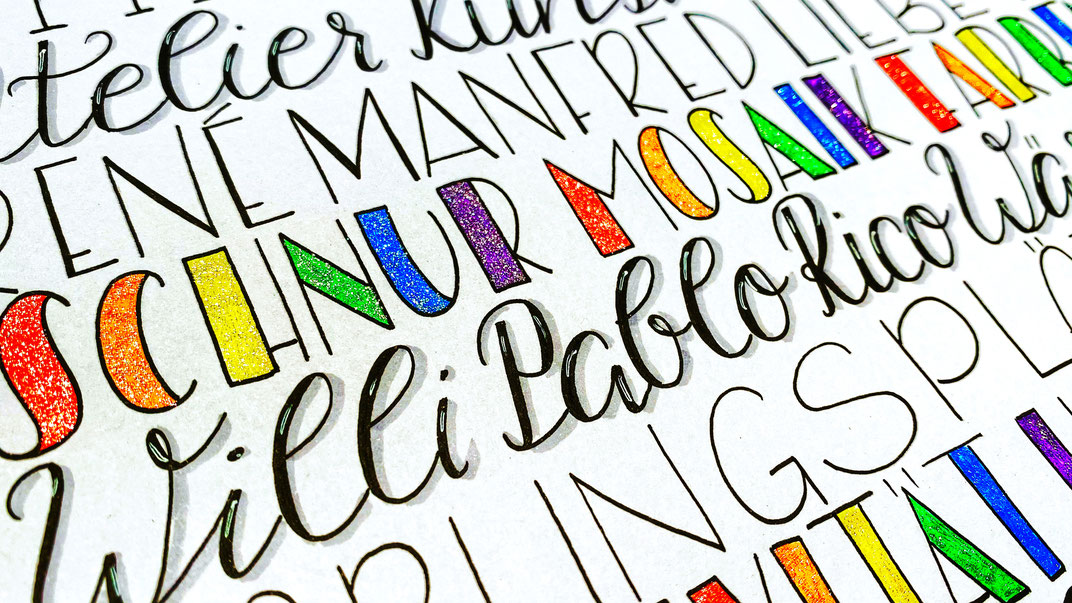 telier Kuns
RENÉ MANFRED LIEBE
SCHNUR MOSAIK FARB
Willi Pablo Rico Wä
LINGSPL
VITÄT